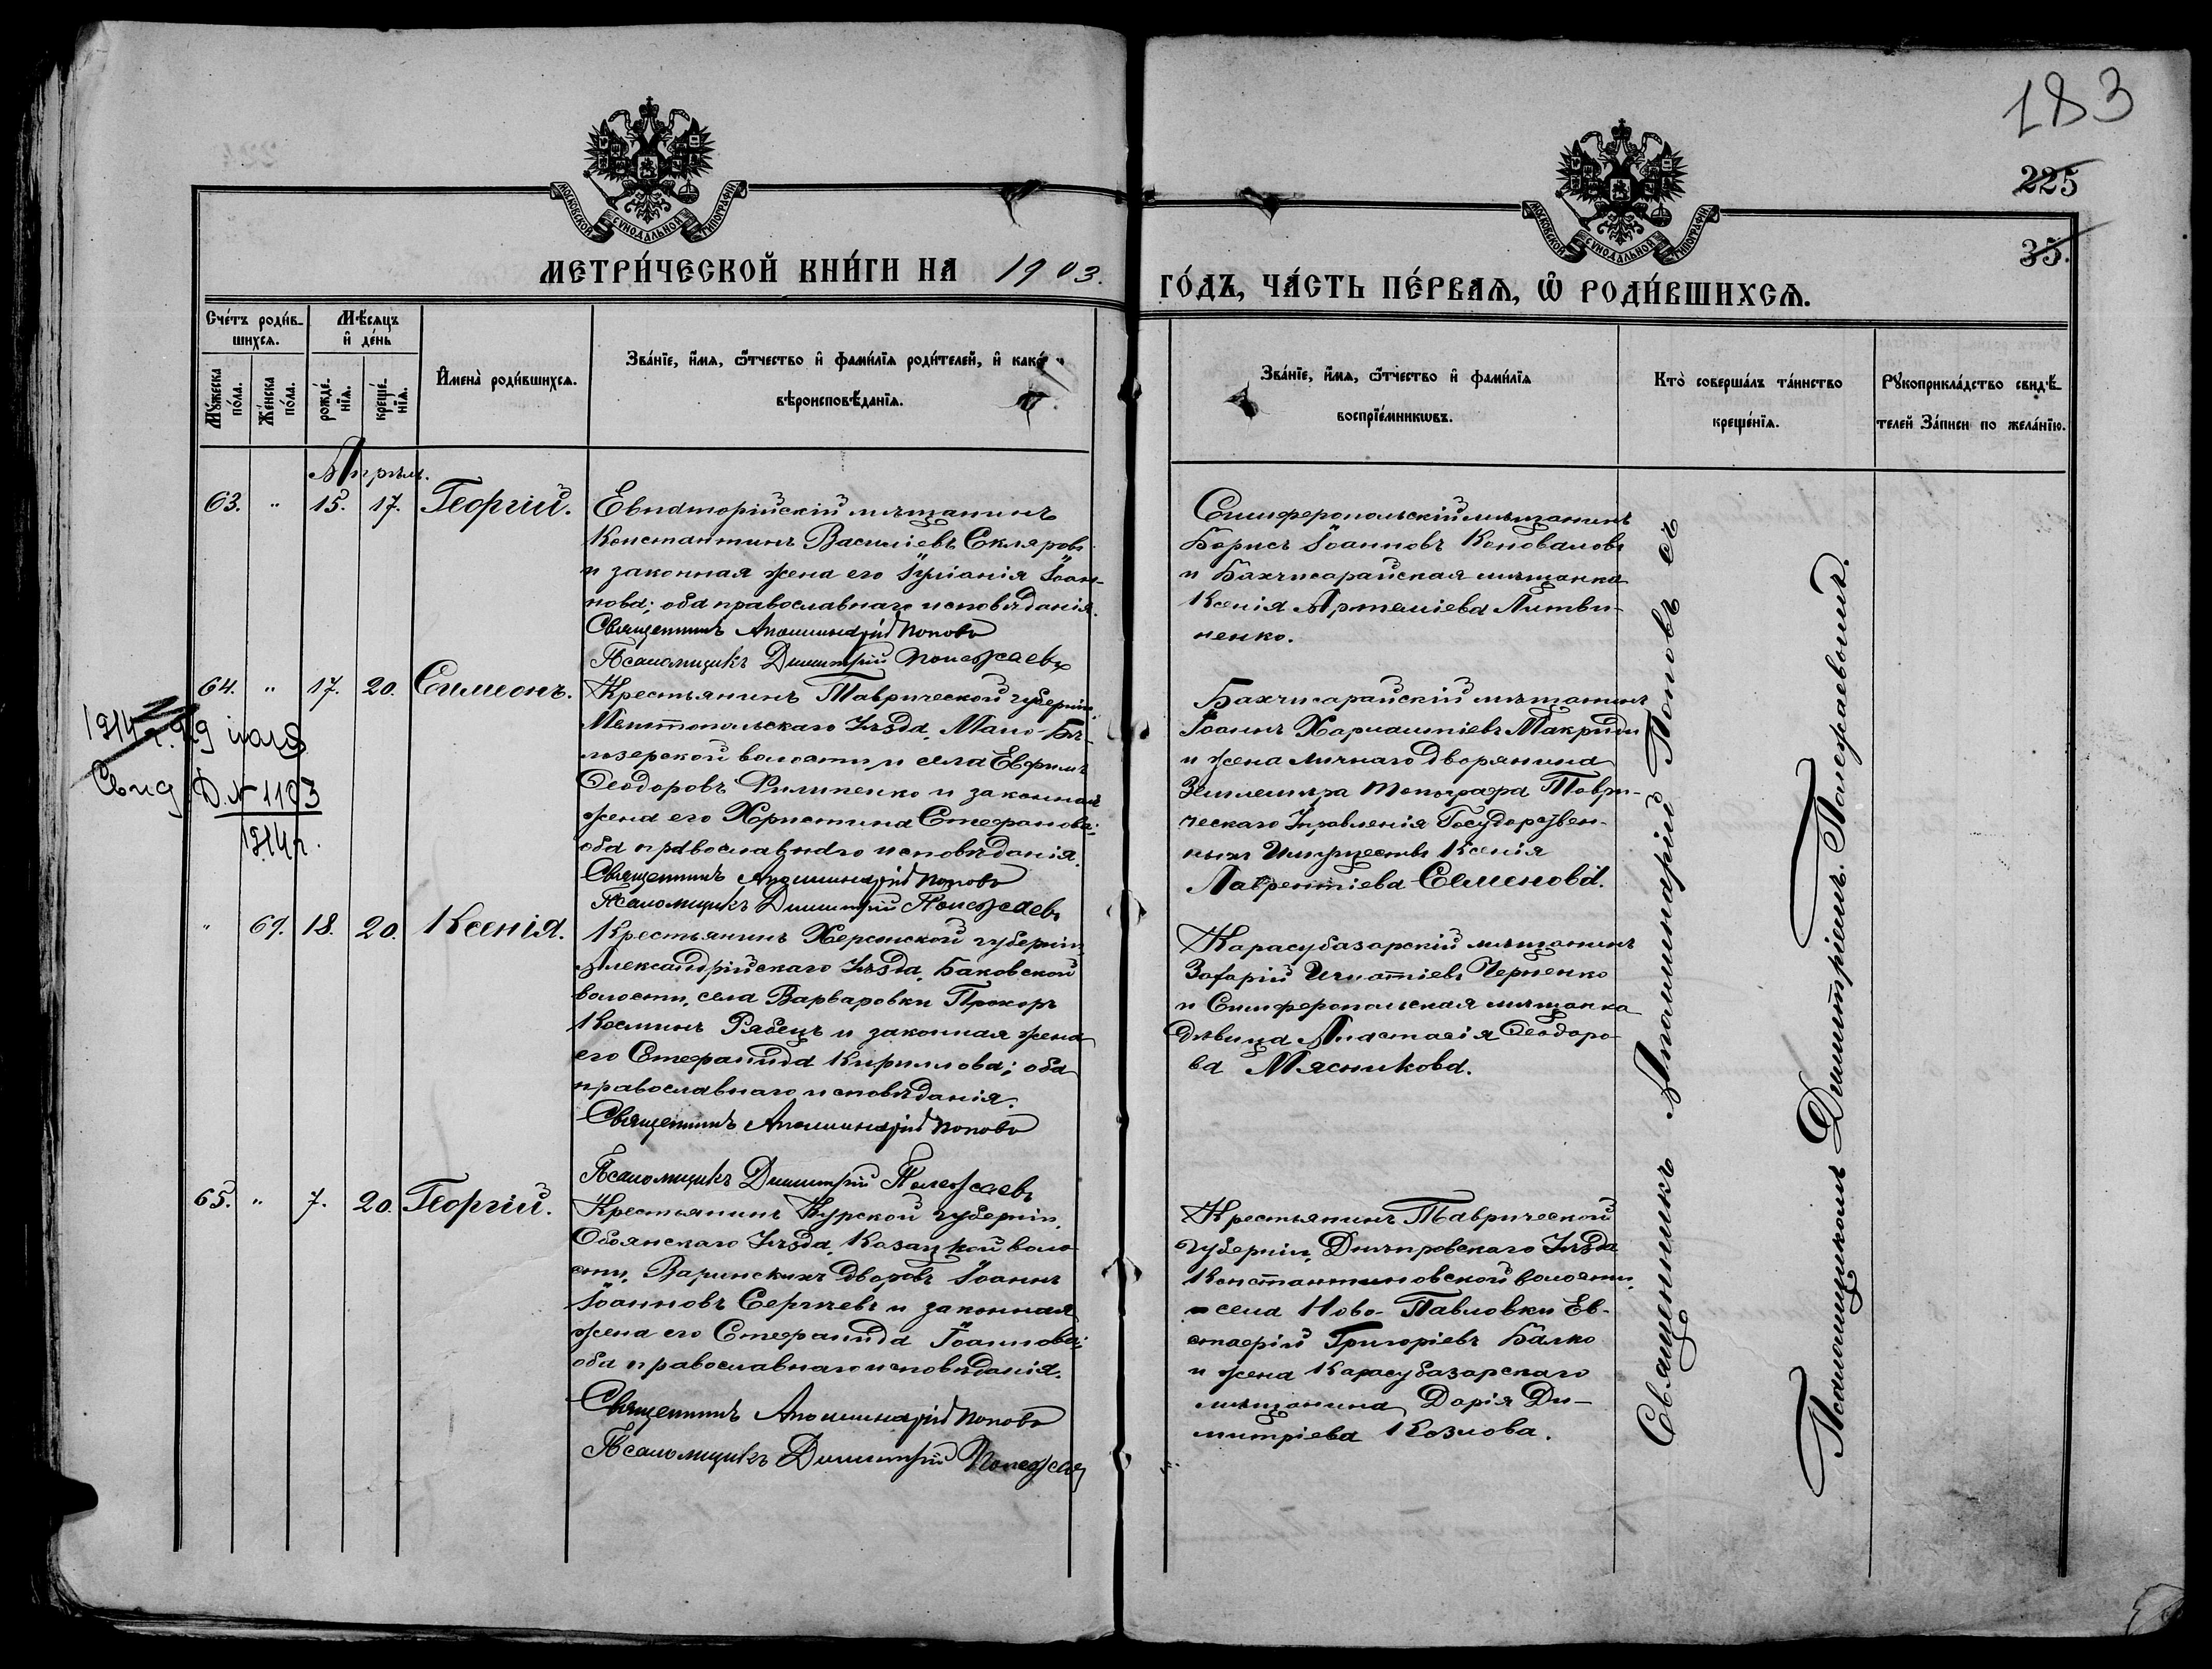 183
225
35.
МОСКОВСКОЙ СѴНОДАЛЬНОЙ ТИПОГРАФІИ
МОСКОВСКОЙ СѴНОДАЛЬНОЙ ТИПОГРАФІИ
МЕТРИ́ЧЕСКОЙ КНИ́ГИ НА 1903.
ГО́ДЪ, ЧА́СТЬ ПЕ́РВАѦ, Ѡ РОДИ́ВШИХСѦ.
Сче́тъ роди́в-
шихсѧ.
Мꙋ́жеска по́ла.
Же́нска по́ла.
Мѣ́сѧцъ
и де́нь
рожде́-
нїѧ.
креще́-
нїѧ.
Имена̀ роди́вшихсѧ.
Зва́нїе, и́мѧ, ѻ́тчество и фами́лїѧ роди́телей, и како́
вѣроисповѣ́данїѧ.
Зва́нїе, и́мѧ, ѻ́тчество и фами́лїѧ
воспрїе́мникѡвъ.
Кто̀ соверша́лъ та́инство
креще́нїѧ.
Рꙋкоприкла́дство свидѣ́-
телей За́писи по жела́нїю.
Апрѣль.
63. " 15. 17. Георгій.
Евпаторійскій мѣщанинъ
Константинъ Василіевъ Скляровъ
и законная жена его Іуліанія Іоан-
нова; оба православнаго исповѣданія.
Священникъ Аполлинарій Поповъ
Псаломщикъ Димитрій Полежаевъ
Симферопольскій мѣщанинъ
Борисъ Іоанновъ Коноваловъ
и Бахчисарайская мѣщанка
Ксенія Артеміева Литви-
ненко.
64. " 17. 20. Симеонъ.
Крестьянинъ Таврической губерніи,
Мелитопольскаго уѣзда, Мало-Бѣ-
лозерской волости и села Евфимъ
Ѳеодоровъ Филипенко и законная
жена его Христина Стефанова;
оба православнаго исповѣданія.
Священникъ Аполлинарій Поповъ
Псаломщикъ Димитрій Полежаевъ
1914 г. 29 іюля
Свид. № 1103
1914 г.
Бахчисарайскій мѣщанинъ
Іоаннъ Харлампіевъ Макриди
и жена личнаго дворянина
Землемѣра Топографа Таври-
ческаго Управленія Государствен-
ныхъ Имуществъ Ксенія
Лаврентіева Семенова.
" 69. 18. 20. Ксенія.
Крестьянинъ Херсонской губерніи,
Александрійскаго уѣзда, Баковской
волости, села Варваровки Прохоръ
Косминъ Рябецъ и законная жена
его Стефанида Кириллова; оба
православнаго исповѣданія.
Священникъ Аполлинарій Поповъ
Псаломщикъ Димитрій Полежаевъ
Карасубазарскій мѣщанинъ
Захарій Игнатіевъ Черненко
и Симферопольская мѣщанка
дѣвица Анастасія Ѳеодоро-
ва Мясникова.
65. " 7. 20. Георгій.
Крестьянинъ Курской губерніи,
Обоянскаго уѣзда, Казацкой воло-
сти, Варинскихъ дворовъ Іоаннъ
Іоанновъ Сергѣевъ и законная
жена его Стефанида Іоаннова;
оба православнаго исповѣданія.
Священникъ Аполлинарій Поповъ
Псаломщикъ Димитрій Полежаев
Крестьянинъ Таврической
губерніи, Днѣпровскаго уѣзда
Константиновской волости,
села Ново-Павловки Ев-
стафій Григоріевъ Балко
и жена Карасубазарскаго
мѣщанина Дарія Ди-
митріева Козлова.
Священникъ Аполлинарій Поповъ съ
Псаломщикомъ Димитріемъ Полежаевымъ.